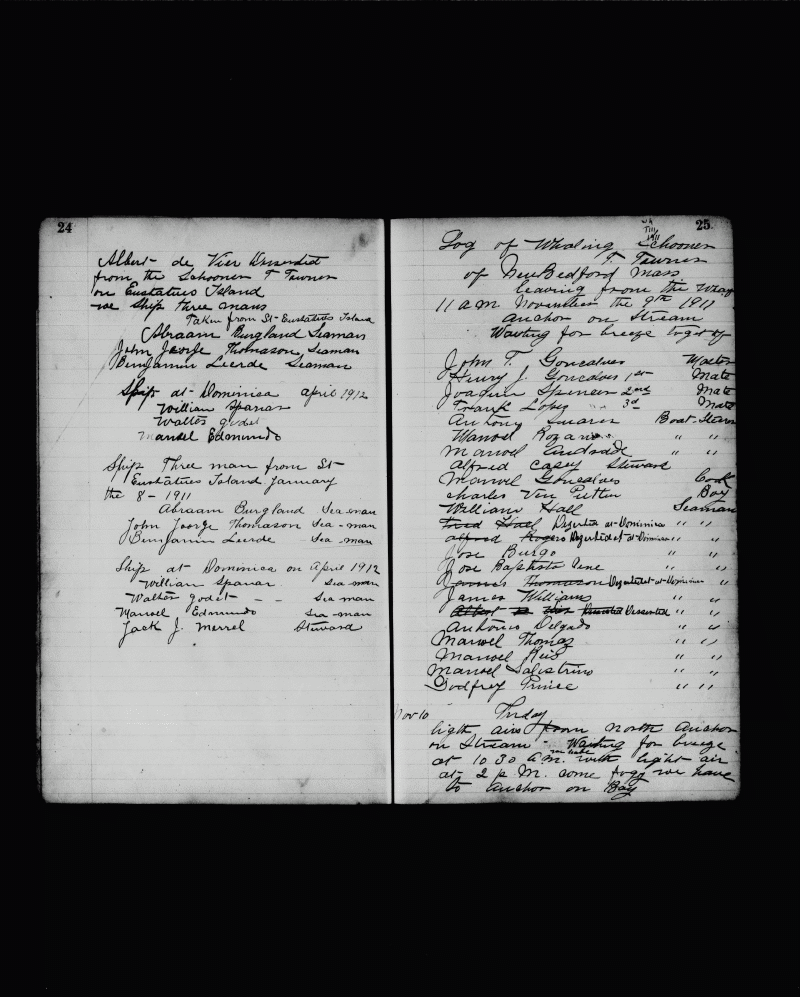 24
Albert de Vier Desserdet
from the Schooner T Towner
on Eustatius Island
we Ship three mans
Taken from St Eustatius Island
Abraam Burgland Seaman
John Jeorge Thomason Seaman
Benjamin Leerde Seaman
Ship at Dominica april 1912
William Spanar
Walter godet
Manuel Edmundo
Ship Three man from St
Eustatius Island January
the 8 - 1911
Abraam Burgland Sea-man
John Jeorge Thomason Sea-man
Benjamin Leerde Sea man
Ship at Dominica on April 1912
William Spanar Sea-man
Walter godet - - Sea man
Manuel Edmundo Sea-man
Jack J. Merrel Steward
25
1911
Log of Whaling Schooner
T. Towner
of New Bedford Mass
leaving from the
11 a m November the 9th 1911
anchor on Stream
Waiting for breeze to get
John T. Goncalves Master
Henry J. Goncalves 1st Mate
Joaquin Spencer 2nd Mate
Frank Lopes 3d Mate
Antony Boat-
Manoel Rozario " "
Manoel Andrade " "
alfred Casey Steward
Manoel Goncalves Cook
charles Van Putten Boy
William Hall Seaman
Fred Hall Deserted at Dominica " "
alfred Rogers Desertedet at Dominica " "
Jose Burgo " "
Jose Baptista Pine " "
James Thomason Desertedet at Dominica " "
James Williams " "
Albert de Vier Desserdet " "
António Delgado " "
Manoel Thomaz " "
Manoel Reis " "
Manoel Salestrino " "
Godfrey Prince " "
Nov 10 Friday
ligth airs from North Anchor
on Stream - Waiting for breeze
at 10 30 a.m. with light air
at 2 p. M. come fogg we have
to anchor on Bay